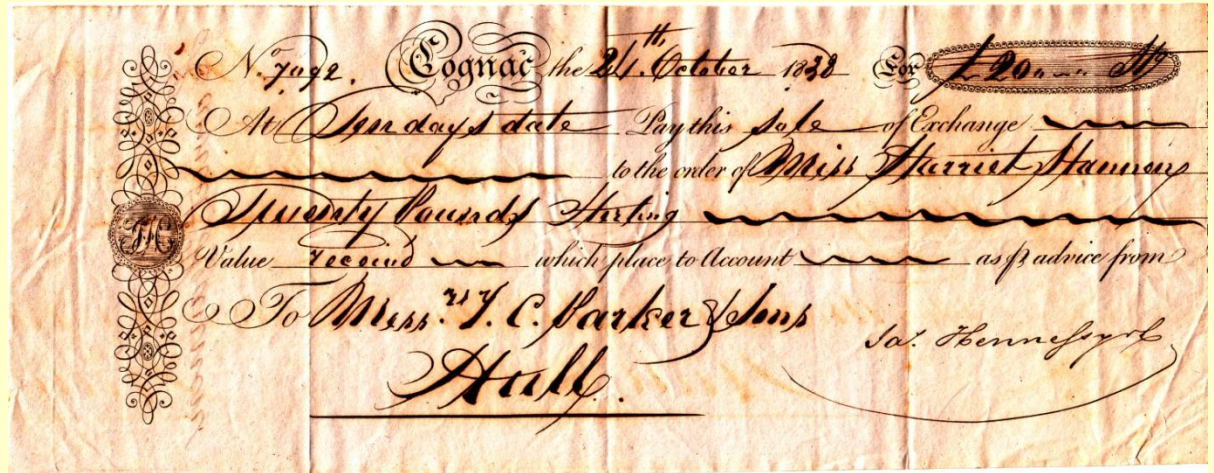 No. 7092. Cognac the 24th. October 1838 For £20 Stg
At Ten days date Pay this sole of Exchange
to the order of Miss Harriet Hannony
Twenty Pounds Sterling
Value received which place to Account as pr advice from
To Messrs. T. C. Parker & Sons
Jas. Hennessy & Co
Hull.
JH